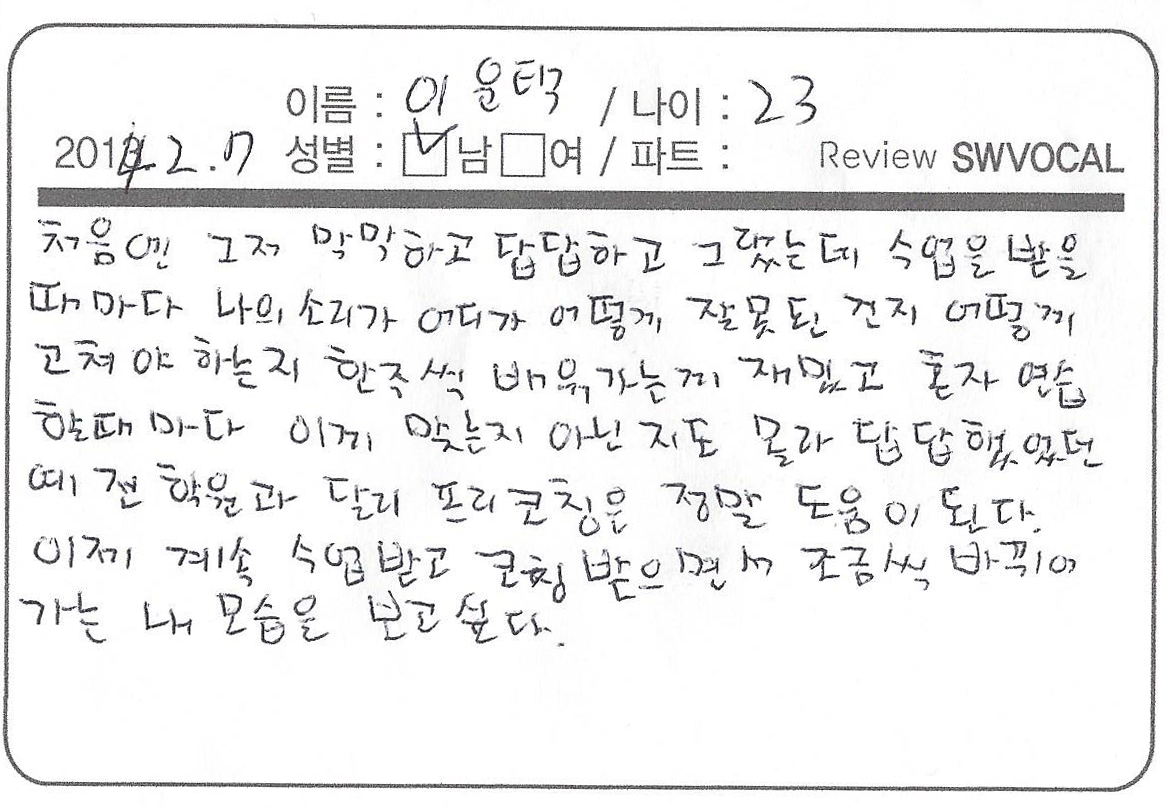 이름 : 이윤택 / 나이 : 23
2012.2.7 성별 : ☑남 □여 / 파트 : Review SWVOCAL
처음엔 그저 막막하고 답답하고 그랬는데 수업을 받을
때마다 나의 소리가 어디가 어떻게 잘못된 건지 어떻게
고쳐야 하는지 한주씩 배워가는게 재밌고 혼자 연습
할때마다 이게 맞는지 아닌지도 몰라 답답했었던
예전 학원과 달리 프리코칭은 정말 도움이 된다.
이제 계속 수업받고 코칭 받으면서 조금씩 바뀌어
가는 내 모습을 보고싶다.